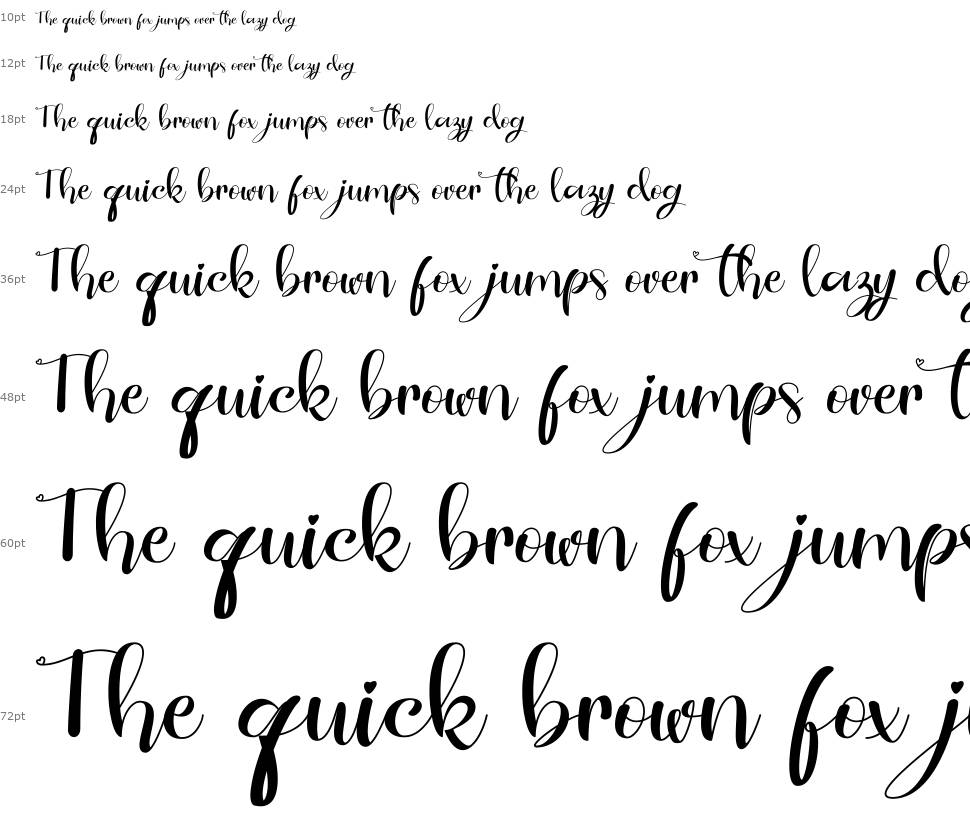 10pt The quick brown fox jumps over the lazy dog
12pt The quick brown fox jumps over the lazy dog
18pt The quick brown fox jumps over the lazy dog
24pt The quick brown fox jumps over the lazy dog
36pt The quick brown fox jumps over the lazy do
48pt The quick brown fox jumps over t
60pt The quick brown fox jumps
72pt The quick brown fox j